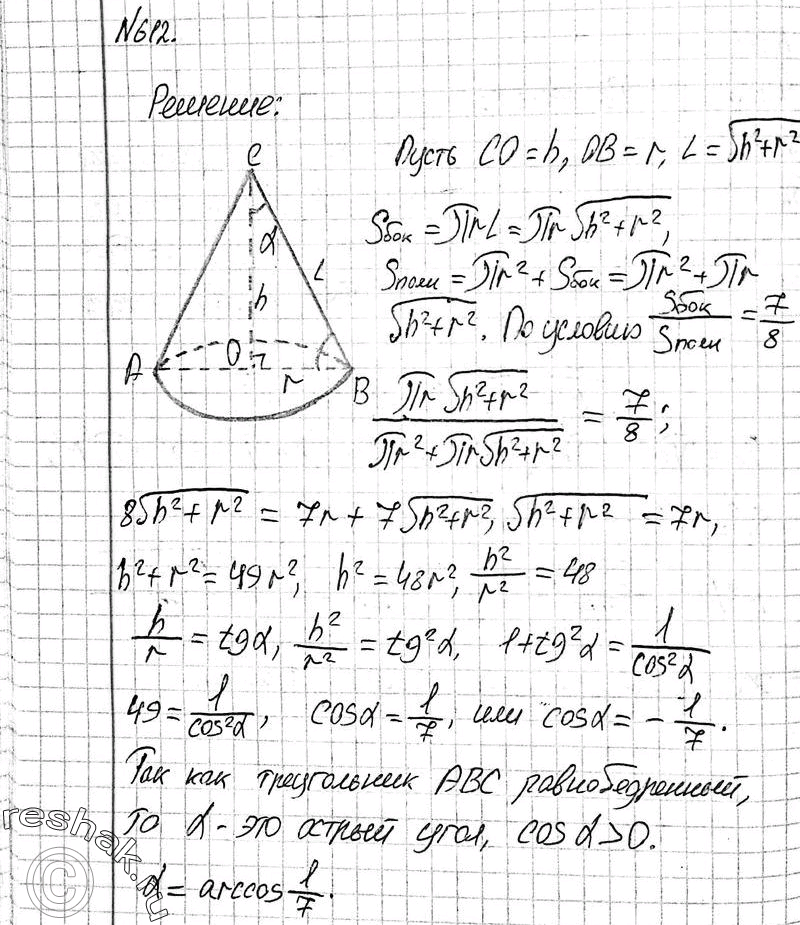 №612.
Решение:
C
α
L
h
A
O
r
B
Пусть CO = h, OB = r, L = √(h²+r²)
Sбок = πrL = πr√(h²+r²),
Sполн = πr² + Sбок = πr² + πr
√(h²+r²). По условию Sбок/Sполн = 7/8
πr√(h²+r²)/(πr²+πr√(h²+r²)) = 7/8;
8√(h²+r²) = 7r + 7√(h²+r²), √(h²+r²) = 7r,
h²+r² = 49r², h² = 48r², h²/r² = 48
h/r = tgα, h²/r² = tg²α, 1+tg²α = 1/cos²α
49 = 1/cos²α, cosα = 1/7, или cosα = -1/7.
Так как треугольник ABC равнобедренный,
то α - это острый угол, cosα>0.
α = arccos 1/7.
reshak.ru
©